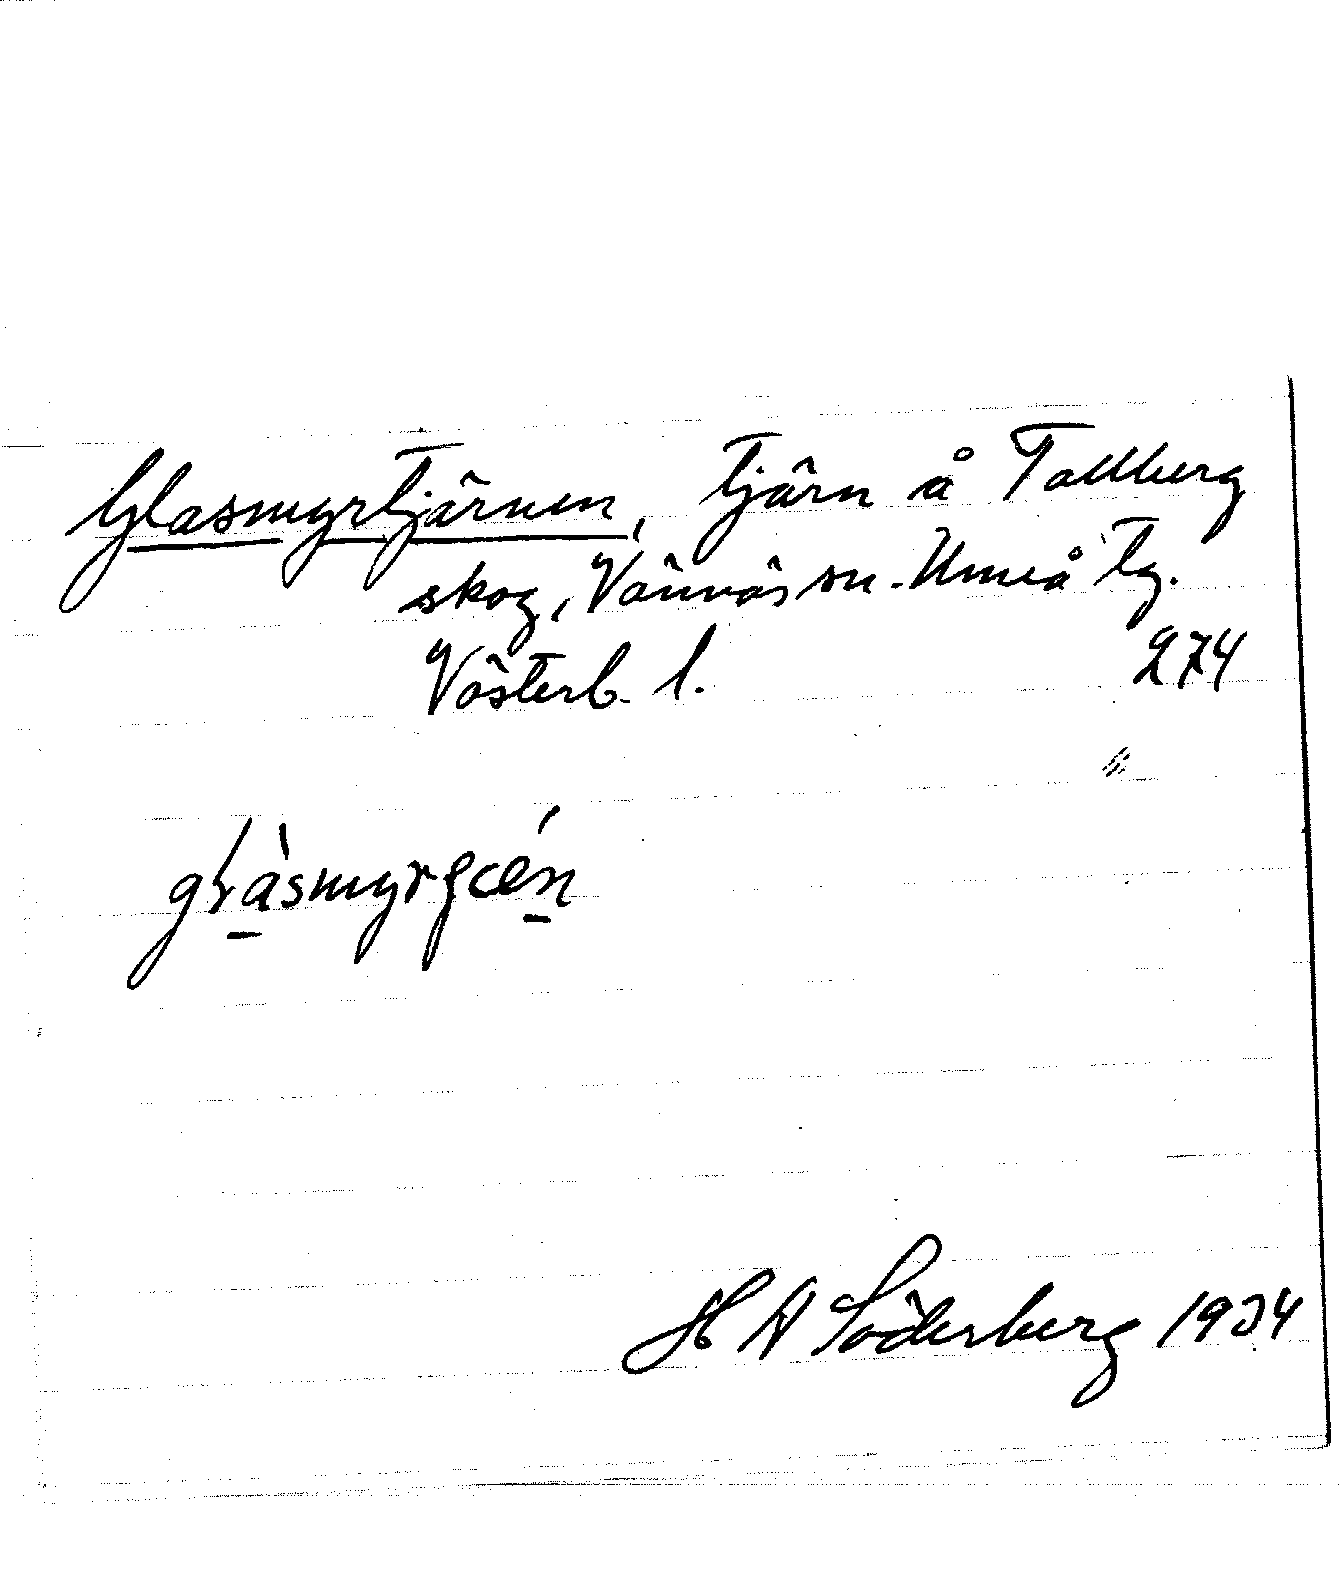 Glasmyrtjärnen, tjärn å Tallberg
skog, Vännäs sn. Umeå tg.
Västerb. l. 274
H A Söderberg 1934